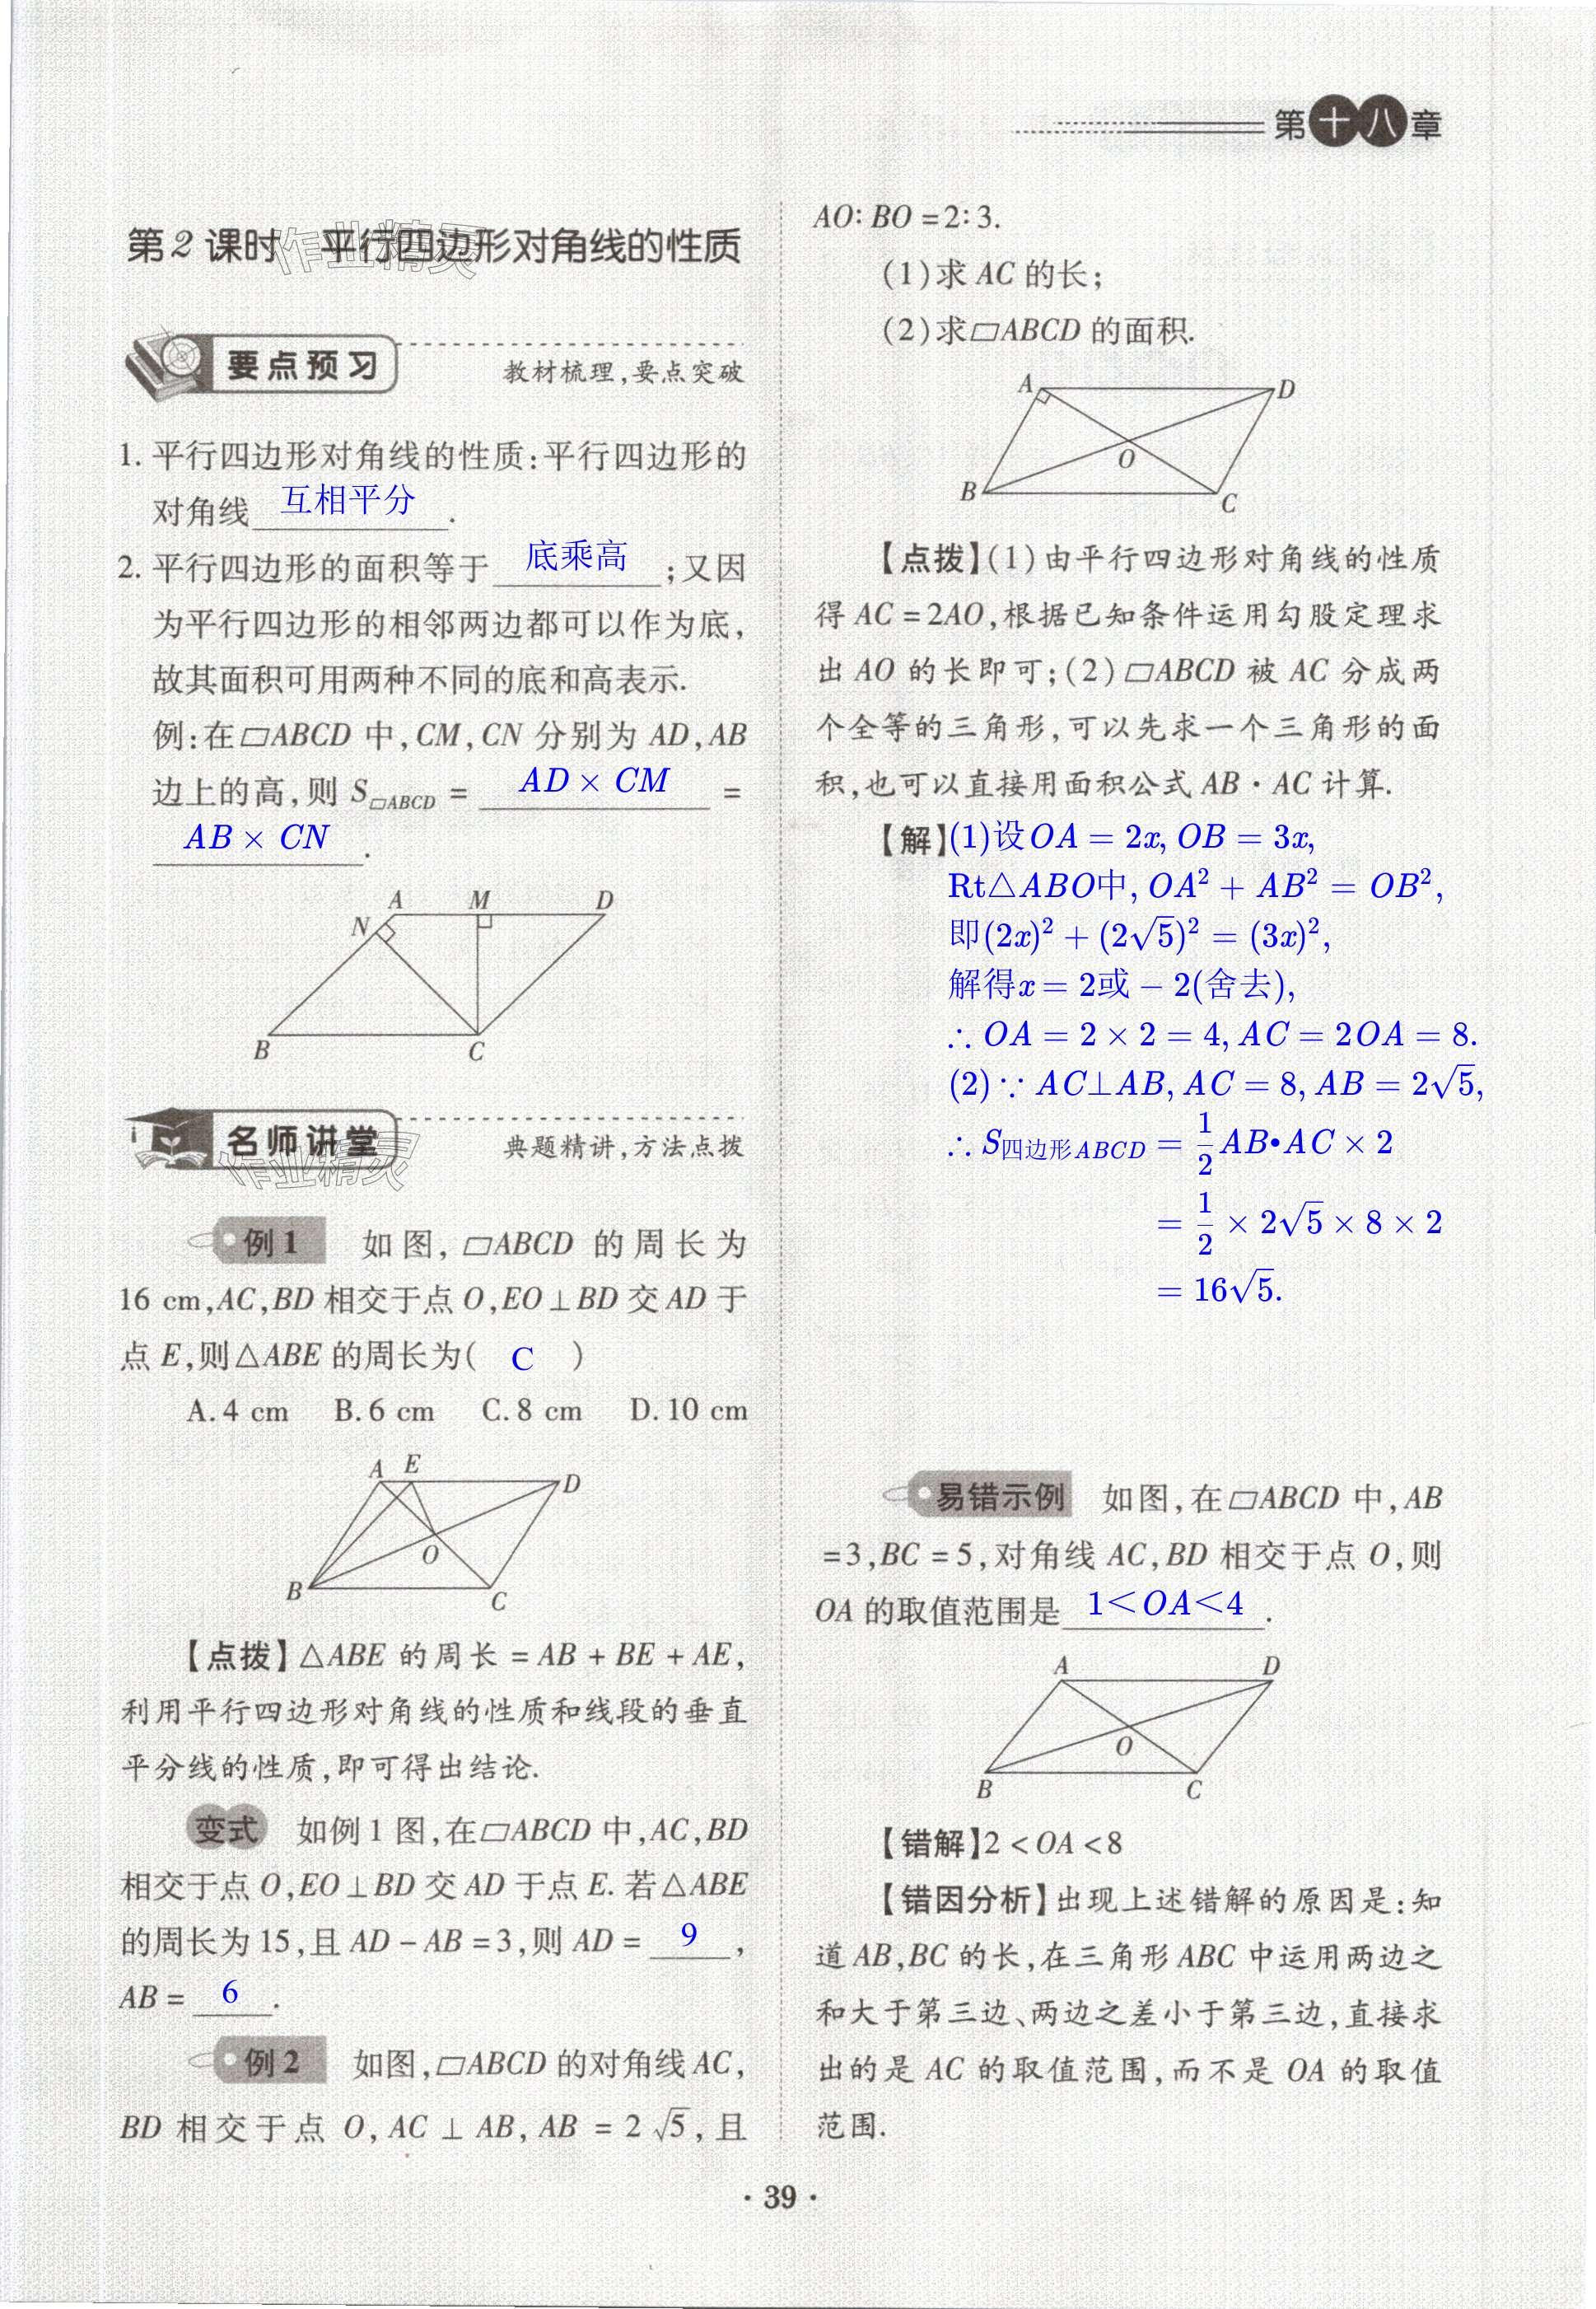 第十八章
第2课时 平行四边形对角线的性质
作业精灵
要点预习 教材梳理,要点突破
1. 平行四边形对角线的性质:平行四边形的
对角线 互相平分 .
2. 平行四边形的面积等于 底乘高 ;又因
为平行四边形的相邻两边都可以作为底,
故其面积可用两种不同的底和高表示.
例:在▱ABCD 中,CM,CN 分别为 AD,AB
边上的高,则 S▱ABCD = AD × CM =
AB × CN .
A M D
N
B C
名师讲堂 典题精讲,方法点拨
作业精灵
例1 如图, ▱ABCD 的周长为
16 cm,AC,BD 相交于点 O,EO⊥BD 交 AD 于
点 E,则△ABE 的周长为( C )
A. 4 cm B. 6 cm C. 8 cm D. 10 cm
A E
D
O
B
C
【点拨】△ABE 的周长 = AB + BE + AE,
利用平行四边形对角线的性质和线段的垂直
平分线的性质,即可得出结论.
变式 如例1图,在▱ABCD 中,AC,BD
相交于点 O,EO⊥BD 交 AD 于点 E. 若△ABE
的周长为 15,且 AD − AB = 3,则 AD = 9 ,
AB = 6 .
例2 如图,▱ABCD 的对角线 AC,
BD 相交于点 O, AC ⊥ AB, AB = 2√5, 且
AO∶BO = 2∶3.
(1)求 AC 的长;
(2)求▱ABCD 的面积.
A D
O
B
C
【点拨】(1)由平行四边形对角线的性质
得 AC = 2AO,根据已知条件运用勾股定理求
出 AO 的长即可;(2)▱ABCD 被 AC 分成两
个全等的三角形,可以先求一个三角形的面
积,也可以直接用面积公式 AB · AC 计算.
【解】(1)设OA = 2x, OB = 3x,
Rt△ABO中, OA² + AB² = OB²,
即(2x)² + (2√5)² = (3x)²,
解得x = 2或 − 2(舍去),
∴ OA = 2 × 2 = 4, AC = 2OA = 8.
(2)∵ AC⊥AB, AC = 8, AB = 2√5,
∴ S四边形ABCD = 1/2 AB•AC × 2
= 1/2 × 2√5 × 8 × 2
= 16√5.
易错示例 如图,在▱ABCD 中,AB
=3,BC = 5,对角线 AC,BD 相交于点 O,则
OA 的取值范围是 1＜OA＜4 .
A D
O
B C
【错解】2 < OA < 8
【错因分析】出现上述错解的原因是:知
道 AB,BC 的长,在三角形 ABC 中运用两边之
和大于第三边、两边之差小于第三边,直接求
出的是 AC 的取值范围,而不是 OA 的取值
范围.
· 39 ·